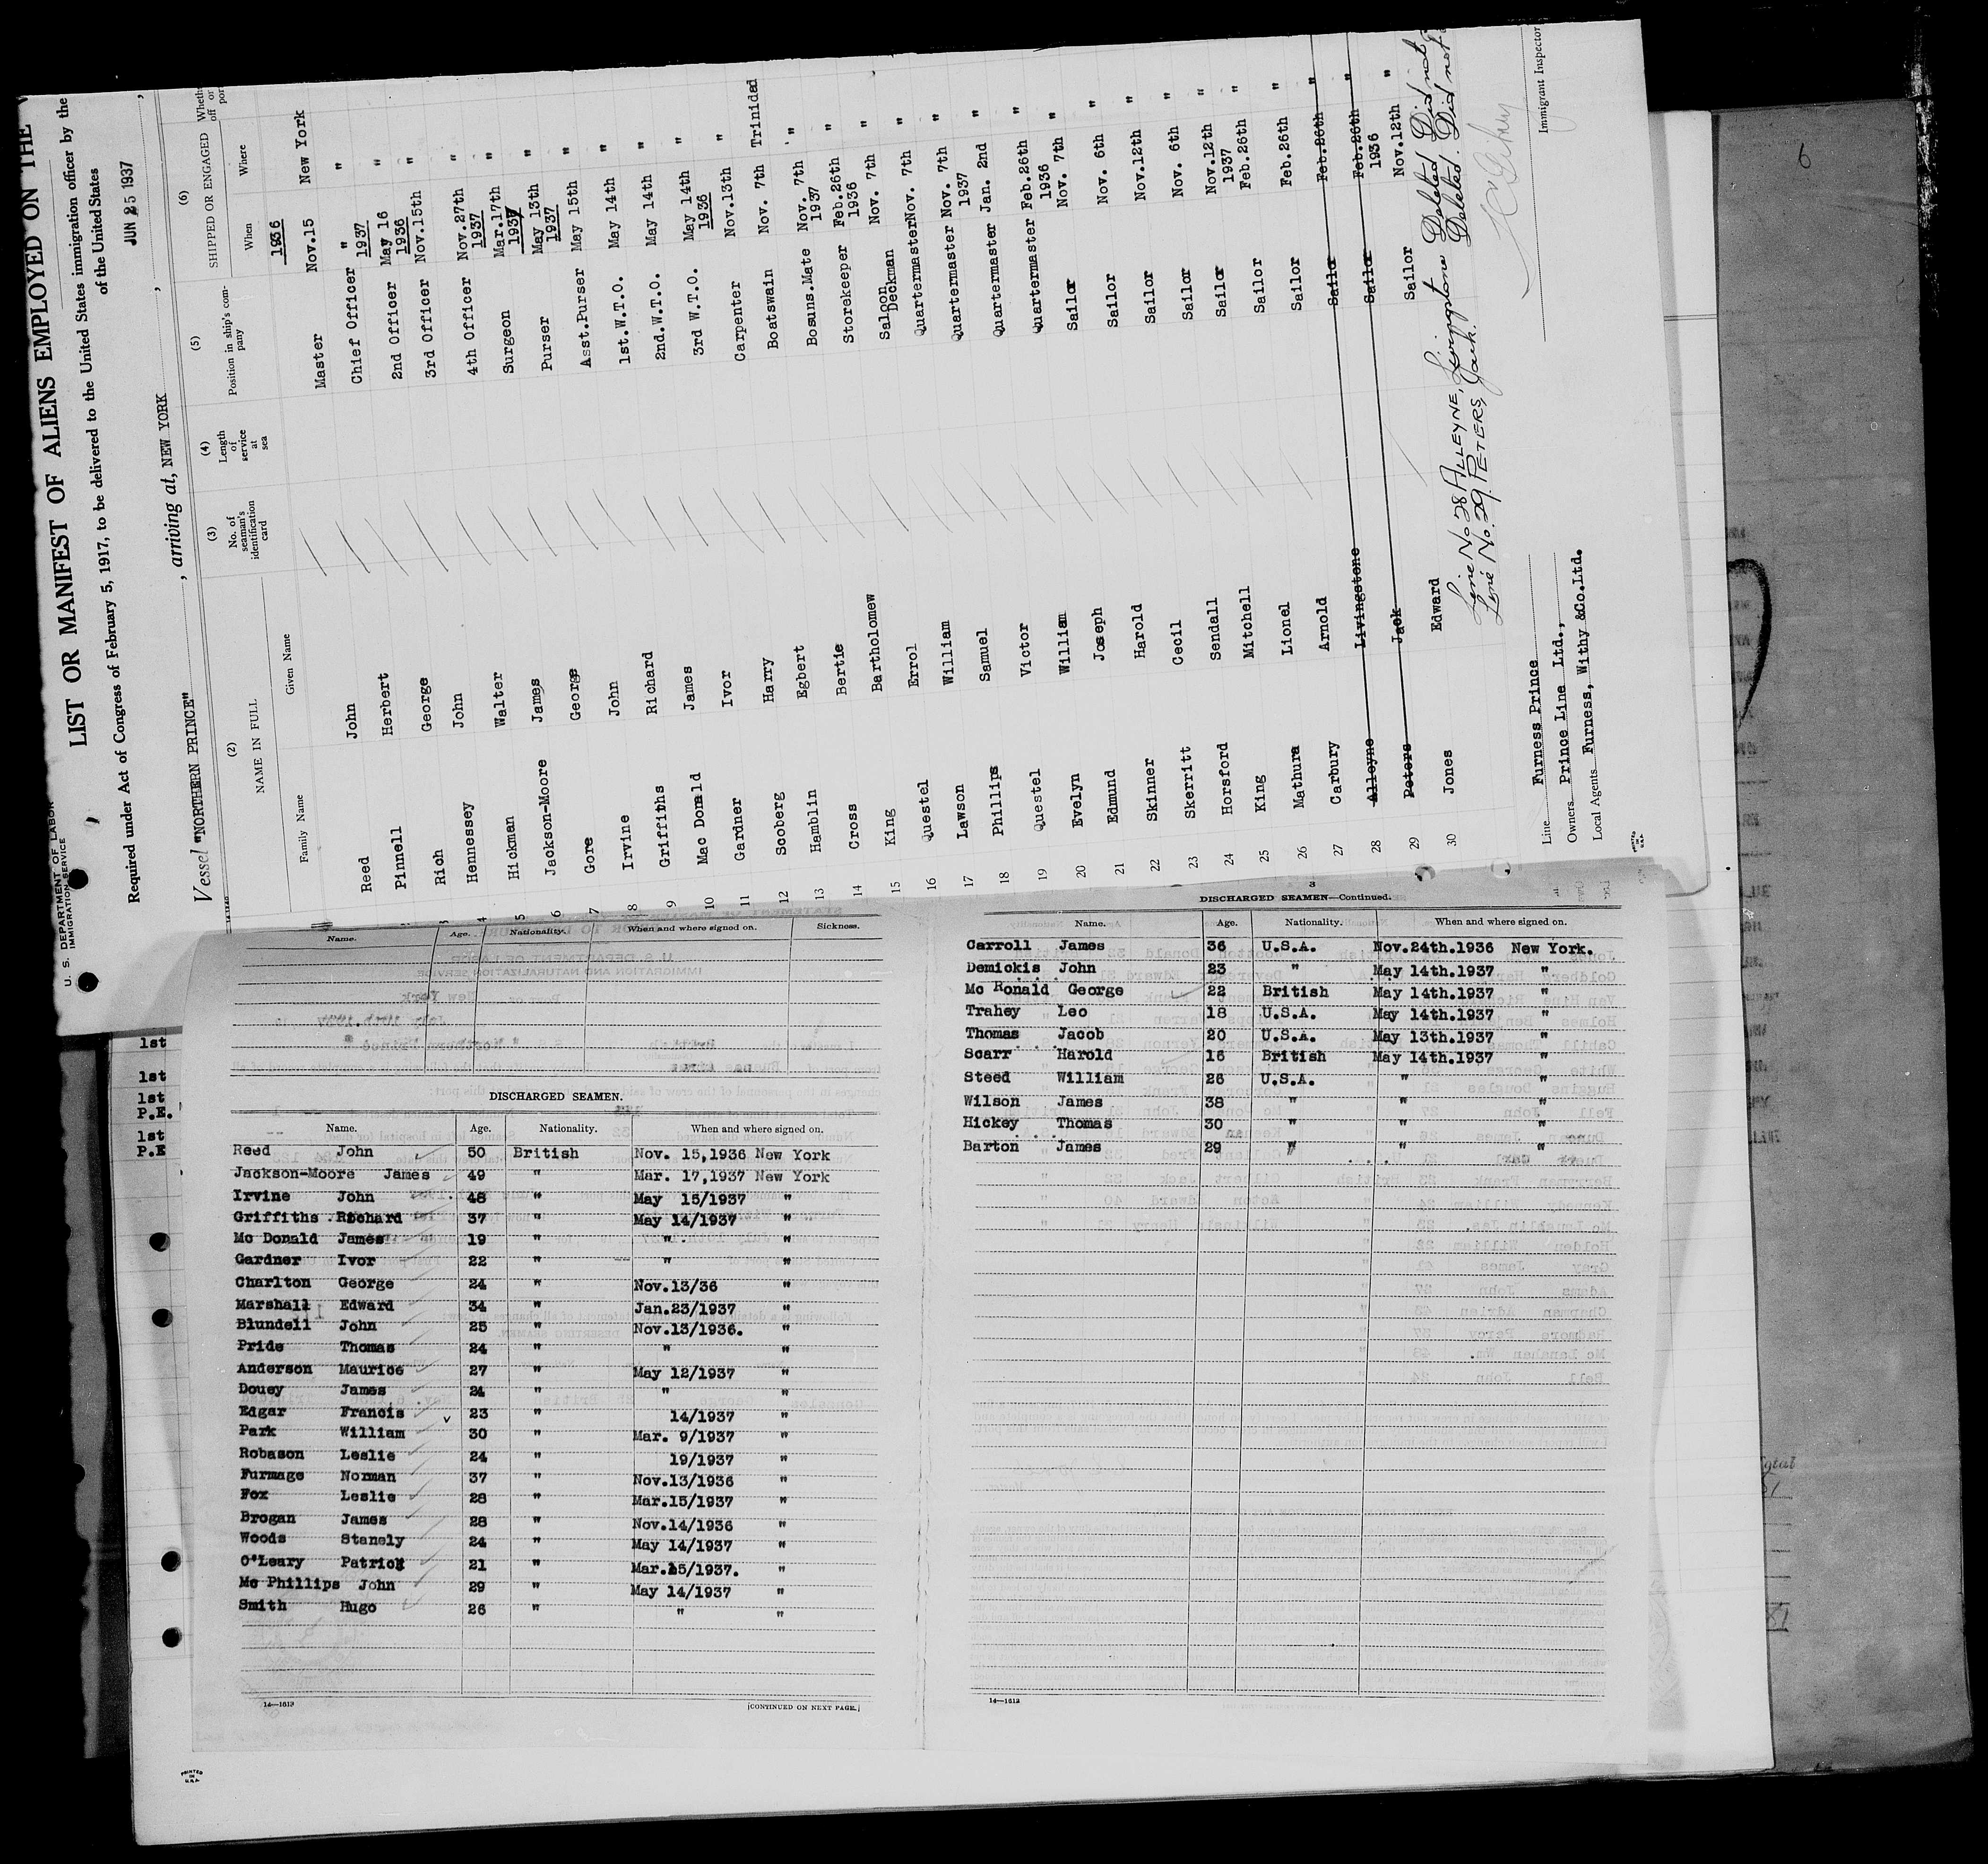 U. S. DEPARTMENT OF LABOR
IMMIGRATION SERVICE
LIST OR MANIFEST OF ALIENS EMPLOYED ON THE
Required under Act of Congress of February 5, 1917, to be delivered to the United States immigration officer by the
of the United States
JUN 25 1937
Vessel "NORTHERN PRINCE" , arriving at, NEW YORK ,
(2) (3) (4) (5) (6)
NAME IN FULL No. of seaman's identification card Length of service at sea Position in ship's company SHIPPED OR ENGAGED
Family Name Given Name When Where
1936
Reed John Master Nov.15 New York
Pinnell Herbert Chief Officer " "
1937
Rich George 2nd Officer May 16 "
1936
4 Hennessey John 3rd Officer Nov.15th "
5 Hickman Walter 4th Officer Nov.27th "
1937
6 Jackson-Moore James Surgeon Mar.17th "
1937
7 Gore George Purser May 13th "
1937
8 Irvine John Asst.Purser May 15th "
9 Griffiths Richard 1st.W.T.O. May 14th "
10 Mac Donald James 2nd.W.T.O. May 14th "
11 Gardner Ivor 3rd W.T.O. May 14th "
1936
12 Scoberg Harry Carpenter Nov.13th "
13 Hamblin Egbert Boatswain Nov. 7th Trinidad
14 Cross Bertie Bosuns.Mate Nov. 7th "
1937
15 King Bartholomew Storekeeper Feb.26th "
1936
16 Questel Errol Saloon Deckman Nov. 7th "
17 Lawson William Quartermaster Nov. 7th "
18 Phillips Samuel Quartermaster Nov. 7th "
1937
19 Questel Victor Quartermaster Jan. 2nd "
20 Evelyn William Quartermaster Feb.26th "
1936
21 Edmund Joseph Sailor Nov. 7th "
22 Skinner Harold Sailor Nov. 6th "
23 Skerritt Cecil Sailor Nov.12th "
24 Horsford Sendall Sailor Nov. 6th "
25 King Mitchell Sailor Nov.12th "
1937
26 Mathura Lionel Sailor Feb.26th "
27 Carbury Arnold Sailor Feb.26th "
28 Alleyne Livingstone Sailor Feb.26th "
29 Peters Jack Sailor Feb.26th "
1936
30 Jones Edward Sailor Nov.12th "
Line No 28 ALLEYNE, Livingstone Deleted Did not
Line No. 29. PETERS, Jack. Deleted. Did not
Line Furness Prince
Owners Prince Line Ltd.,
Local Agents Furness, Withy &Co.Ltd.
Immigrant Inspector
1st
1st
1st
P.E.
1st
P.E
Name. Age. Nationality. When and where signed on. Sickness.
DISCHARGED SEAMEN.
Name. Age. Nationality. When and where signed on.
Reed John 50 British Nov. 15,1936 New York
Jackson-Moore James 49 " Mar. 17,1937 New York
Irvine John 48 " May 15/1937 "
Griffiths Richard 37 " May 14/1937 "
Mc Donald James 19 " " "
Gardner Ivor 22 " " "
Charlton George 24 " Nov.13/36 "
Marshall Edward 34 " Jan.23/1937 "
Blundell John 25 " Nov.13/1936. "
Pride Thomas 24 " " "
Anderson Maurice 27 " May 12/1937 "
Douey James 24 " " "
Edgar Francis 23 " 14/1937 "
Park William 30 " Mar. 9/1937 "
Robason Leslie 24 " 19/1937 "
Furmage Norman 37 " Nov.13/1936 "
Fox Leslie 28 " Mar.15/1937 "
Brogan James 28 " Nov.14/1936 "
Woods Stanely 24 " May 14/1937 "
O'Leary Patrick 21 " Mar.15/1937. "
Mc Phillips John 29 " May 14/1937 "
Smith Hugo 26 " " "
14—1613
[CONTINUED ON NEXT PAGE.]
3
DISCHARGED SEAMEN—Continued.
Name. Age. Nationality. When and where signed on.
Carroll James 36 U.S.A. Nov.24th.1936 New York.
Demickis John 23 " May 14th.1937 "
Mc Ronald George 22 British May 14th.1937 "
Trahey Leo 18 U.S.A. May 14th.1937 "
Thomas Jacob 20 U.S.A. May 13th.1937 "
Scarr Harold 16 British May 14th.1937 "
Steed William 26 U.S.A. " "
Wilson James 38 " " "
Hickey Thomas 30 " " "
Barton James 29 " " "
14—1613
PRINTED IN U.S.A.
6